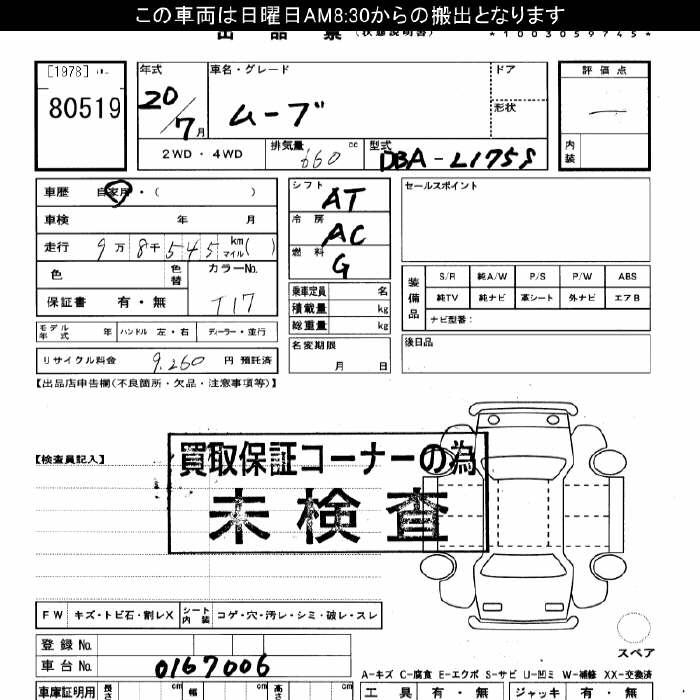 この車両は日曜日AM8:30からの搬出となります
出品票(状態説明書)
*1003059745*
[1978]
80519
年式
20/7月
車名・グレード
ムーブ
ドア
形状
2WD・4WD
排気量 660 cc
型式 DBA-L175S
評価点
内装
車歴 自家用・( )
車検 年 月
走行 9万8千545 km マイル( )
色
色替
カラーNo.
T17
保証書 有・無
モデル年式 年
ハンドル 左・右
ディーラー・並行
リサイクル料金 9,260 円 預託済
シフト AT
冷房 AC
燃料 G
乗車定員 名
積載量 kg
総重量 kg
名変期限
月 日
セールスポイント
装備品
S/R 純A/W P/S P/W ABS
純TV 純ナビ 革シート 外ナビ エアB
ナビ型番:
後日品
【出品店申告欄(不良箇所・欠品・注意事項等)】
【検査員記入】
買取保証コーナーの為
未検査
FW キズ・トビ石・割レX
シート内装 コゲ・穴・汚レ・シミ・破レ・スレ
登録No.
車台No. 0167006
スペア
A-キズ C-腐食 E-エクボ S-サビ U-凹ミ W-補修 XX-交換済
車庫証明用 長さ cm 幅 cm 高さ cm
工具 有・無 ジャッキ 有・無